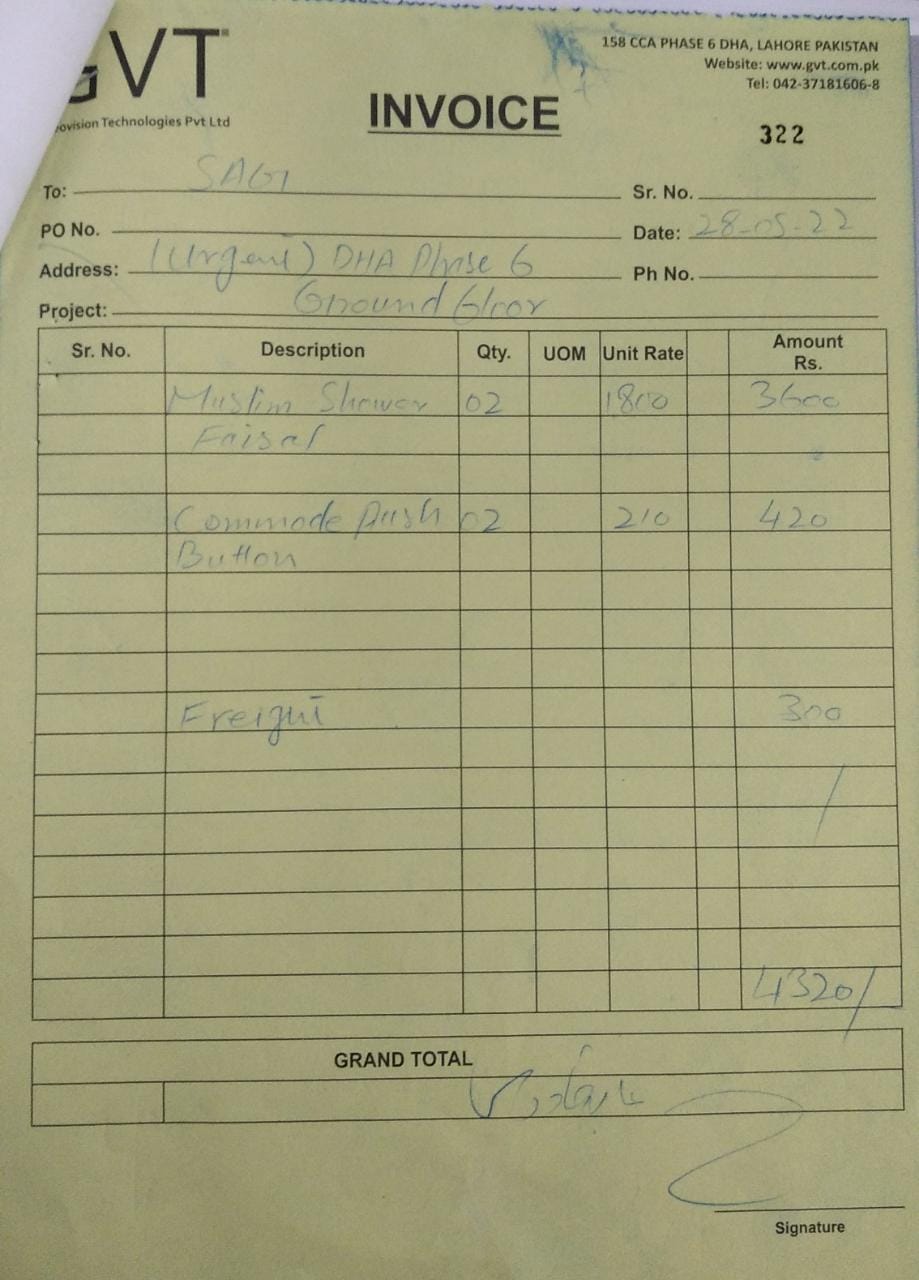 GVT
ovision Technologies Pvt Ltd
158 CCA PHASE 6 DHA, LAHORE PAKISTAN
Website: www.gvt.com.pk
Tel: 042-37181606-8
INVOICE
322
To: SAGI Sr. No.
PO No. Date: 28-05-22
Address: (Urgent) DHA Phase 6 Ph No.
Project: Ground floor
Sr. No. Description Qty. UOM Unit Rate Amount Rs.
Muslim Shower 02 1800 3600
Faisal
Commode Push 02 210 420
Button
Freight 300
4320/
GRAND TOTAL
Signature